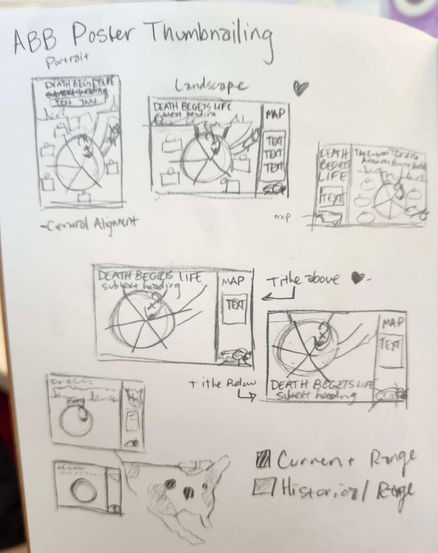 ABB Poster Thumbnailing
Portrait
Landscape
DEATH BEGETS LIFE
subtext heading
TEXT TEXT
DEATH BEGETS LIFE
subtext heading
MAP
TEXT
TEXT
TEXT
DEATH
BEGETS
LIFE
TEXT
map
-Central Alignment
DEATH BEGETS LIFE
subtext heading
MAP
TEXT
Title above
MAP
TEXT
Title Below
DEATH BEGETS LIFE
subtext heading
Current Range
Historical Range